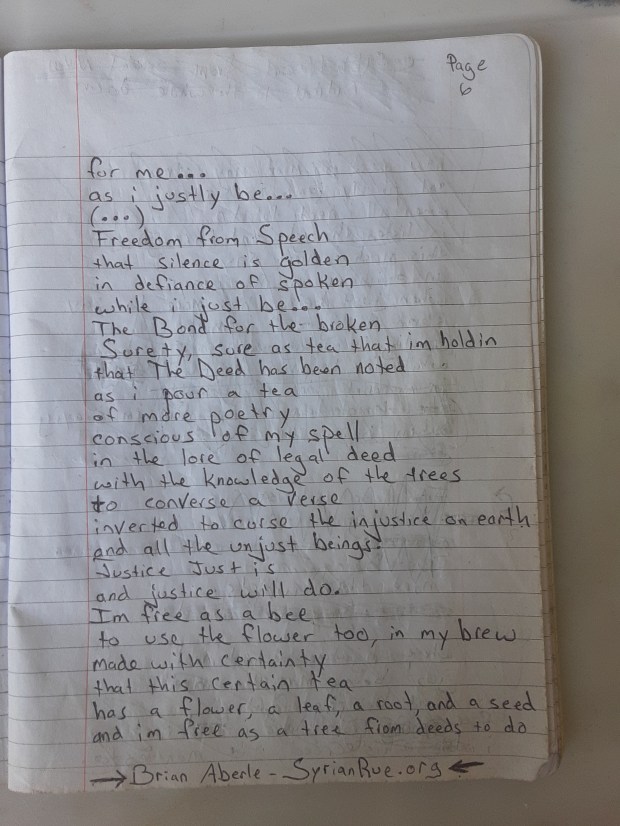 Page
6
for me...
as i justly be...
(...)
Freedom from Speech
that silence is golden
in defiance of spoken
while i just be...
The Bond for the broken
Surety, sure as tea that im holdin
that The Deed has been noted
as i pour a tea
of more poetry
conscious of my spell
in the lore of legal deed
with the knowledge of the trees
to converse a verse
inverted to curse the injustice on earth
and all the unjust beings.
Justice Just is
and justice will do.
Im free as a bee
to use the flower too, in my brew
made with certainty
that this certain tea
has a flower, a leaf, a root, and a seed
and im free as a tree from deeds to do
→ Brian Aberle - SyrianRue.org ←